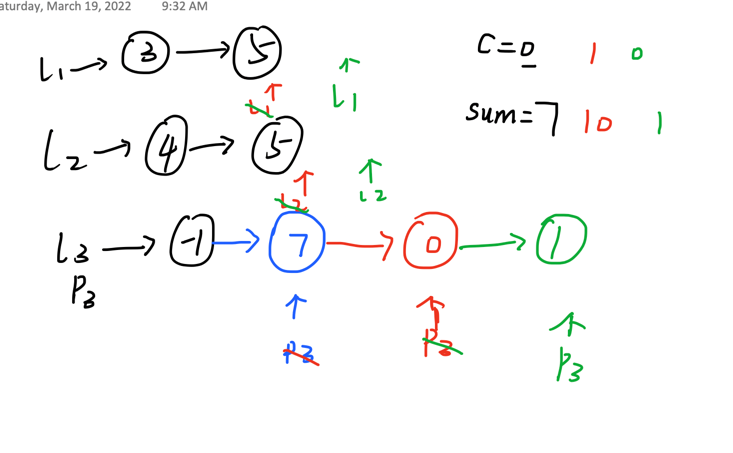 aturday, March 19, 2022 9:32 AM
L1 → 3 → 5
C = 0 1 0
L1 L1
sum = 7 10 1
L2 → 4 → 5
L2 L2
l3 → -1 → 7 → 0 → 1
P3
P3 P3 P3